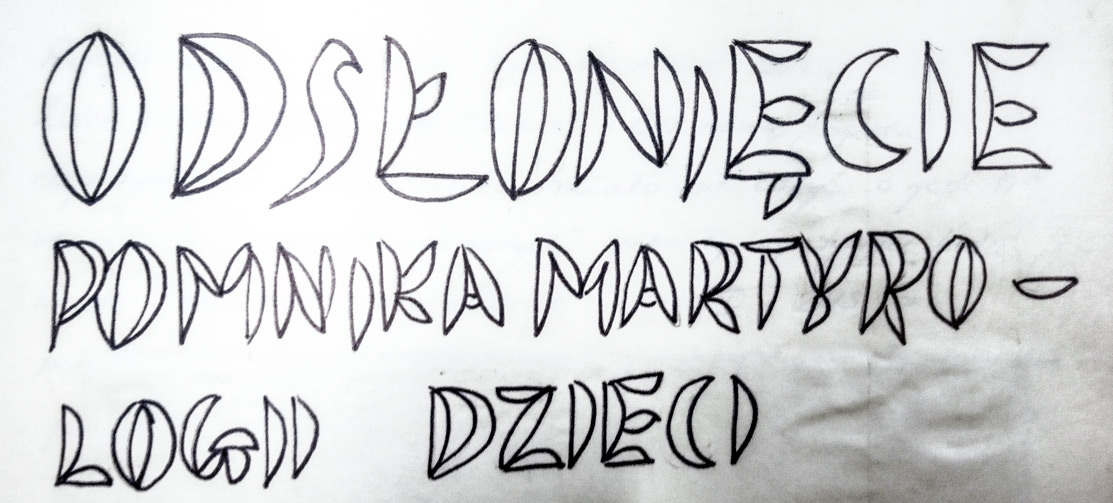 ODSŁONIĘCIE
POMNIKA MARTYRO-
LOGII DZIECI